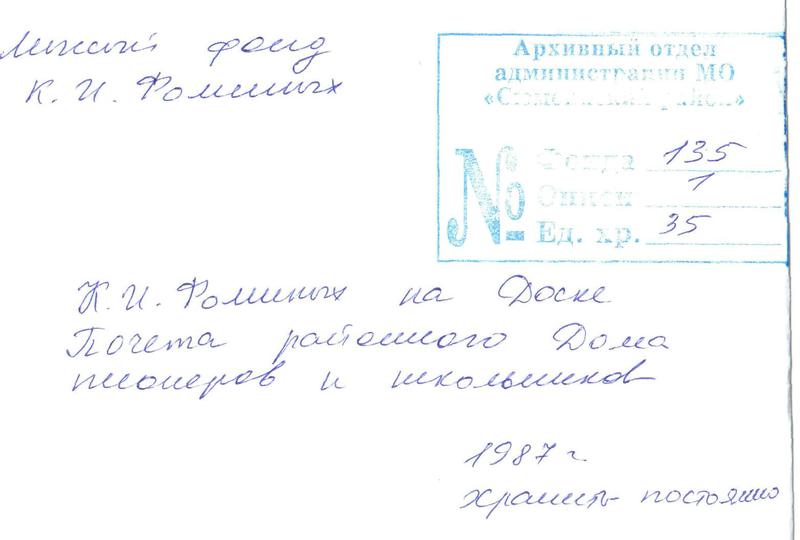 Личный фонд
К. И. Фоминых
Архивный отдел
администрации МО
район»
№
Фонда 135
Описи 1
Ед. хр. 35
К. И. Фоминых на Доске
Почета районного Дома
пионеров и школьников
1987 г.
хранить постоянно